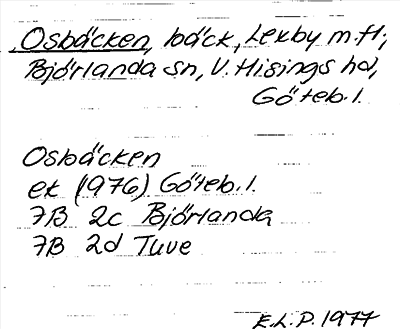 Osbäcken, bäck, Lexby m.fl;
Björlanda sn, V. Hisings hd,
Göteb. l.
Osbäcken
ek (1976) Göteb. l.
7B 2c Björlanda
7B 2d Tuve
E.L.P. 1977